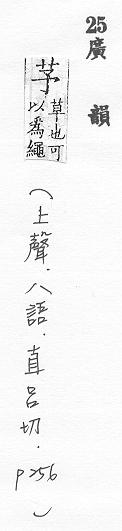 25廣韻
芧 草也可以爲繩
(上聲.八語.直呂切.p256)